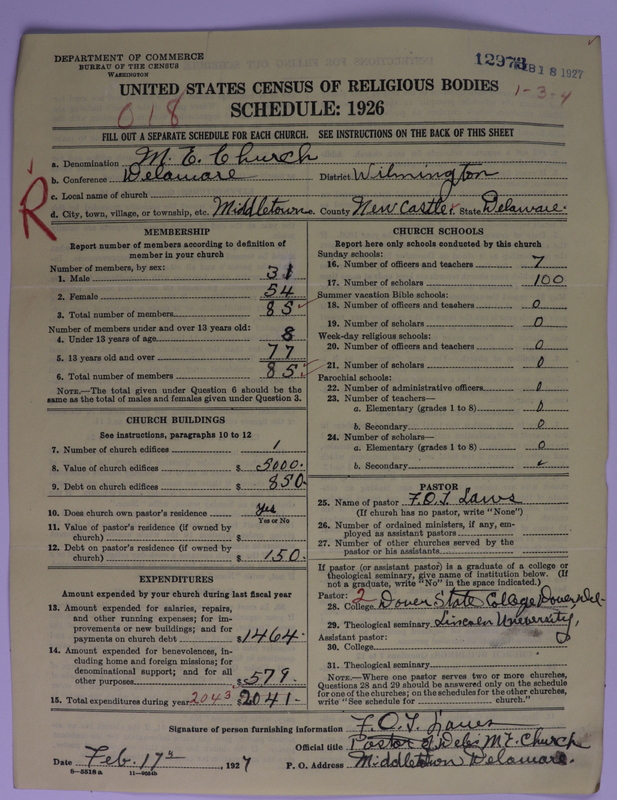 12973 FEB 18 1927
DEPARTMENT OF COMMERCE
BUREAU OF THE CENSUS
WASHINGTON
UNITED STATES CENSUS OF RELIGIOUS BODIES
018
1-3-4
SCHEDULE: 1926
FILL OUT A SEPARATE SCHEDULE FOR EACH CHURCH. SEE INSTRUCTIONS ON THE BACK OF THIS SHEET
R
a. Denomination M. E. Church
b. Conference Delaware District Wilmington
c. Local name of church
d. City, town, village, or township, etc. Middletown e. County New Castle f. State Delaware.
MEMBERSHIP
Report number of members according to definition of
member in your church
Number of members, by sex:
1. Male 31
2. Female 54
3. Total number of members 85
Number of members under and over 13 years old:
4. Under 13 years of age 8
5. 13 years old and over 77
6. Total number of members 85
NOTE.—The total given under Question 6 should be the
same as the total of males and females given under Question 3.
CHURCH BUILDINGS
See instructions, paragraphs 10 to 12
7. Number of church edifices 1
8. Value of church edifices $ 5000.
9. Debt on church edifices $ 850
10. Does church own pastor's residence? Yes
Yes or No
11. Value of pastor's residence (if owned by
church) $
12. Debt on pastor's residence (if owned by
church) $ 150.
EXPENDITURES
Amount expended by your church during last fiscal year
13. Amount expended for salaries, repairs,
and other running expenses; for im-
provements or new buildings; and for
payments on church debt $1464-
14. Amount expended for benevolences, in-
cluding home and foreign missions; for
denominational support; and for all
other purposes $579.
15. Total expenditures during year 2043 $2041-
CHURCH SCHOOLS
Report here only schools conducted by this church
Sunday schools:
16. Number of officers and teachers 7
17. Number of scholars 100
Summer vacation Bible schools:
18. Number of officers and teachers 0
19. Number of scholars 0
Week-day religious schools:
20. Number of officers and teachers 0
21. Number of scholars 0
Parochial schools:
22. Number of administrative officers 0
23. Number of teachers—
a. Elementary (grades 1 to 8) 0
b. Secondary 0
24. Number of scholars—
a. Elementary (grades 1 to 8) 0
b. Secondary
PASTOR
25. Name of pastor F.O.T. Laws
(If church has no pastor, write "None")
26. Number of ordained ministers, if any, em-
ployed as assistant pastors
27. Number of other churches served by the
pastor or his assistants
If pastor (or assistant pastor) is a graduate of a college or
theological seminary, give name of institution below. (If
not a graduate, write "No" in the space indicated.)
Pastor: 2
28. College Dover State College Dover Del-
29. Theological seminary Lincoln University,
Assistant pastor:
30. College
31. Theological seminary
NOTE.—Where one pastor serves two or more churches,
Questions 28 and 29 should be answered only on the schedule
for one of the churches; on the schedules for the other churches,
write "See schedule for church."
Signature of person furnishing information F. O. T. Laws
Official title Pastor of Dela M. E. Church
Date Feb. 17th, 1927 P. O. Address Middletown Delaware.
8—5518a 11—9024b